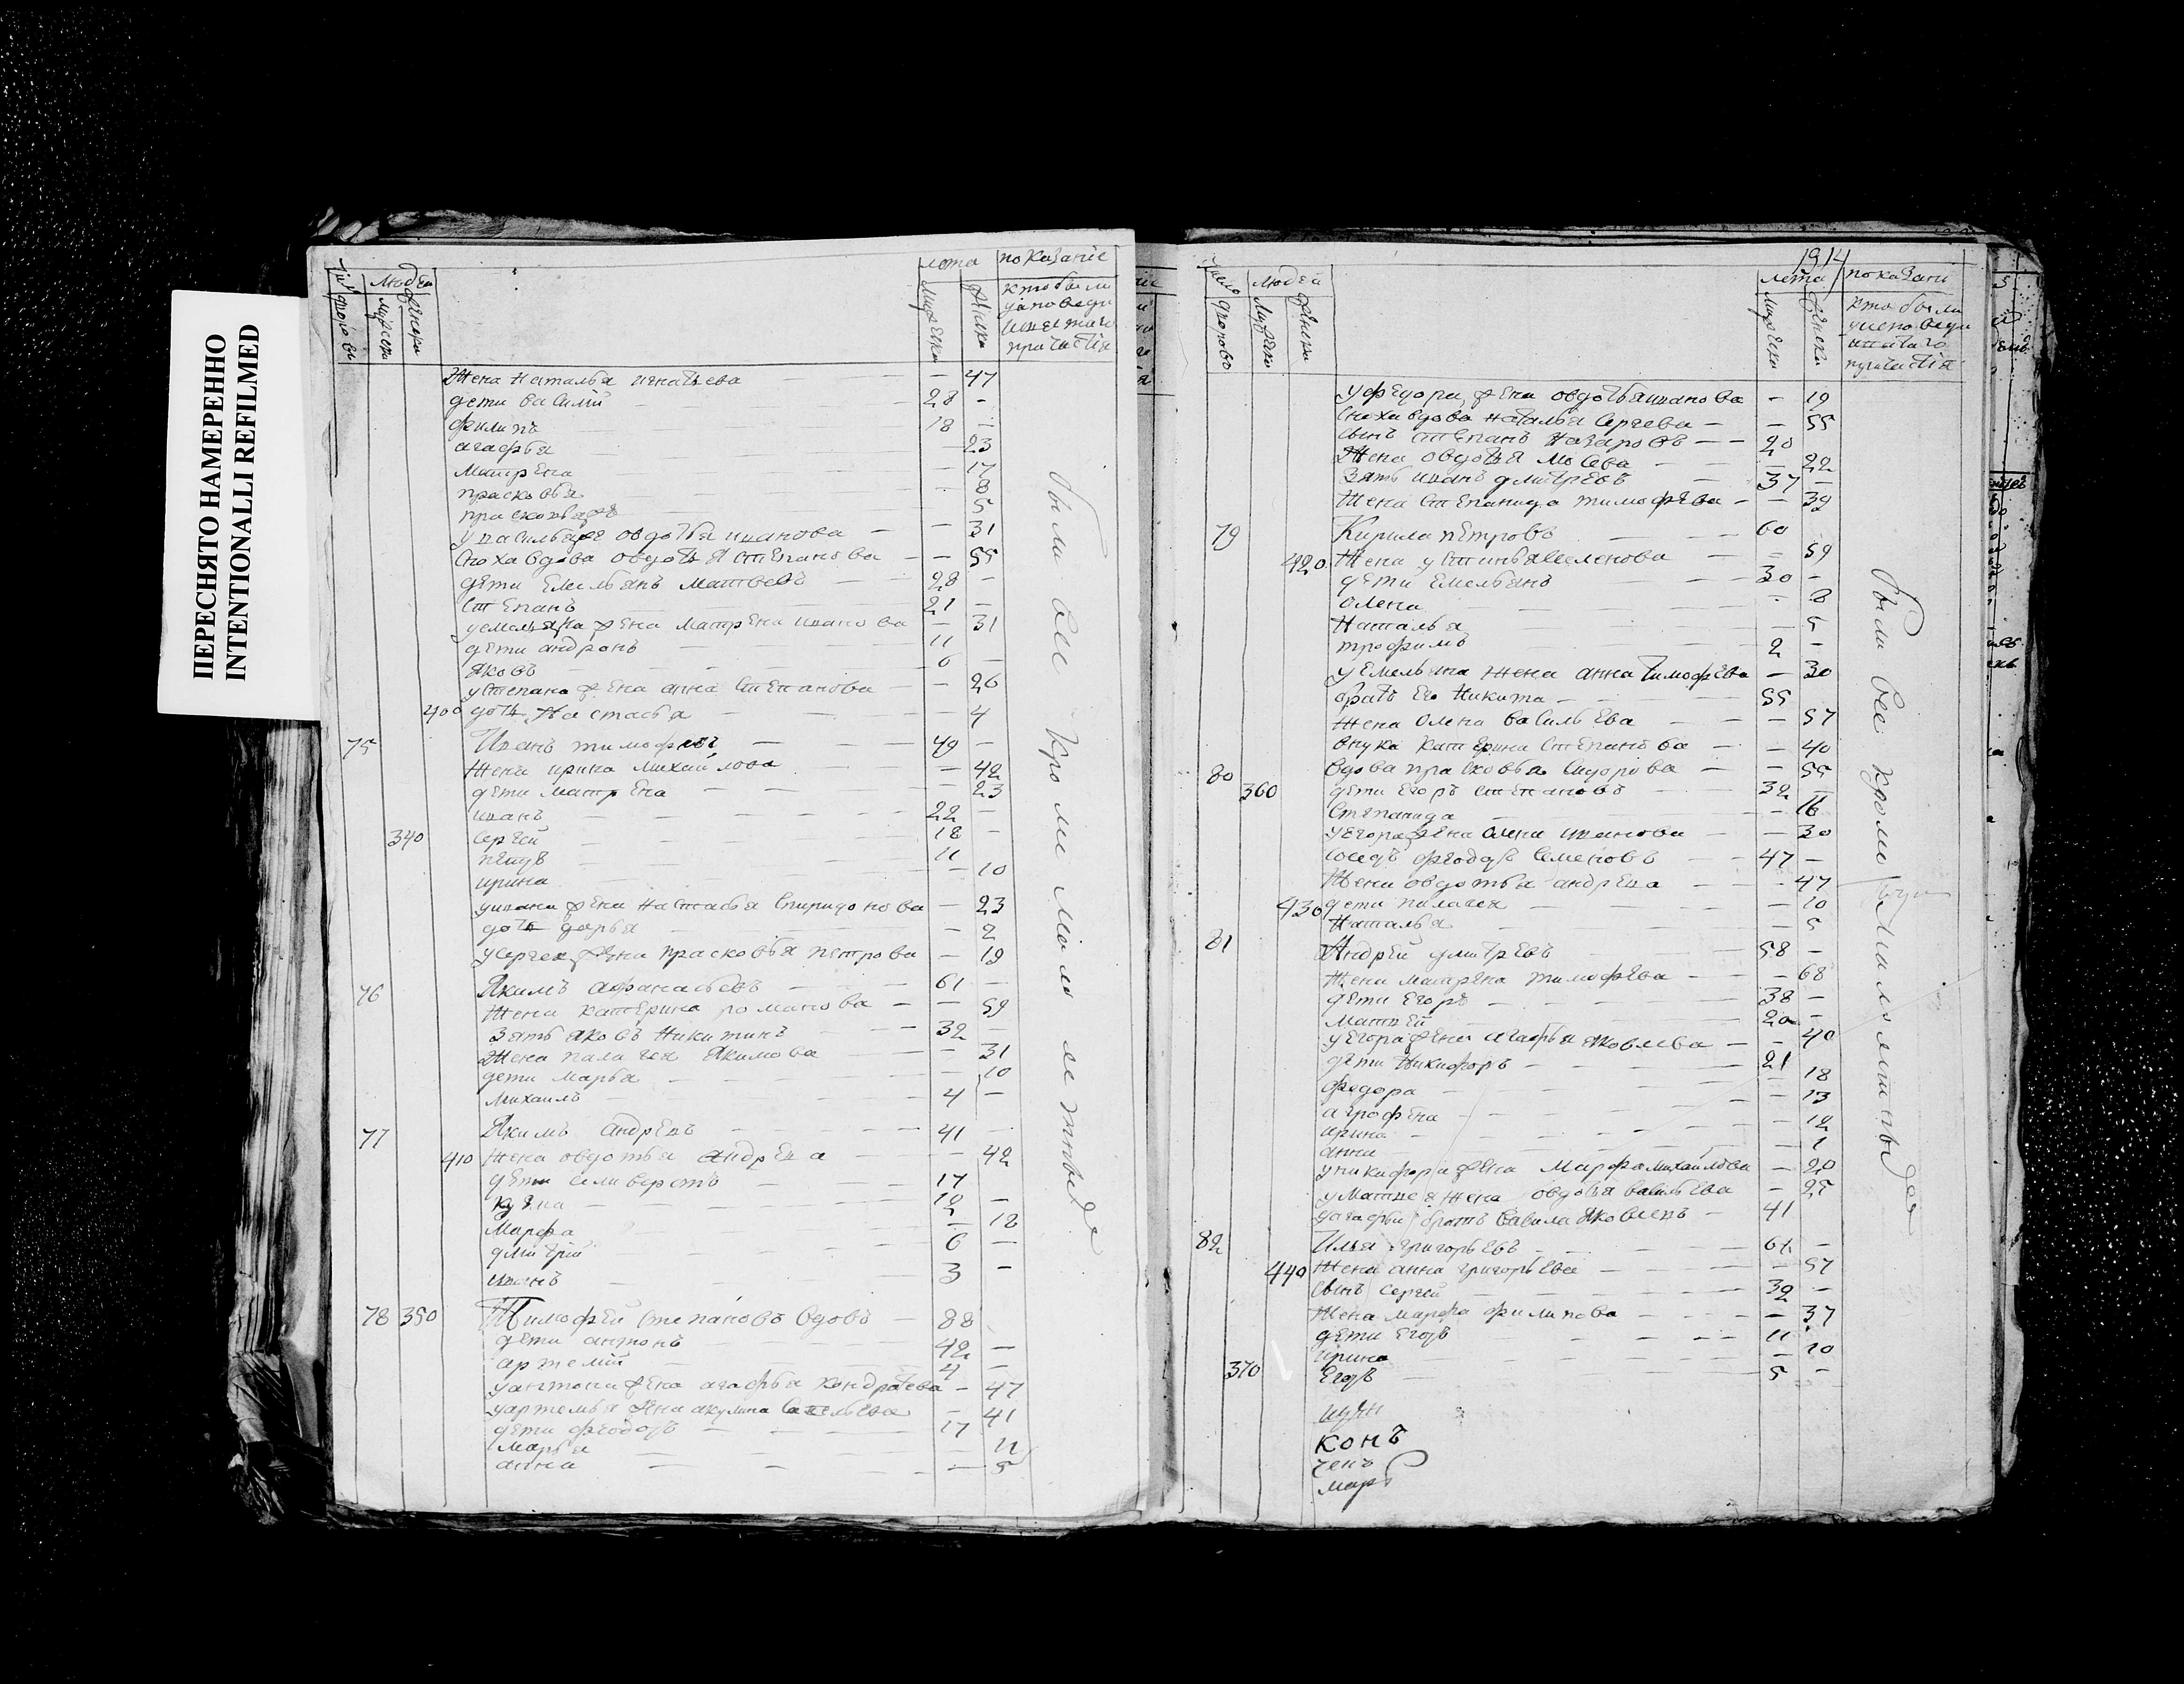 ПЕРЕСНЯТО НАМЕРЕННО
INTENTIONALLI REFILMED
людей
лета
показание
кто были
у исповеди
и святаго
причастия
Жена Наталья игнатьева — 47
дети василий 28 —
филипъ 18 —
агафья — 23
матрена — 17
прасковья — 8
прасковья же — 5
у василья же овдотья иванова — 31
Сноха вдова овдотья степанова — 55
дети Емельянъ матвеевъ 28 —
степанъ 21 —
у емельяна жена матрена иванова — 31
дети андронъ 11
яковъ 6 —
у степана жена анна степанова — 26
400 дочь Настасья — 4
75 Иванъ тимофеевъ 49 —
Жена ирина михайлова — 42
дети матрена — 23
иванъ 22 —
340 сергей 18 —
петръ 11
ирина — 10
у ивана жена настасья спиридонова — 23
дочь дарья — 2
у сергея жена прасковья петрова — 19
76 Якимъ афанасьевъ 61 —
Жена катерина романова — 59
Зять яковъ Никитинъ 32 —
Жена палагея якимова — 31
дети марья — 10
михаилъ 4 —
77 Якимъ андреевъ 41 —
410 Жена овдотья андреева — 42
дети селиверстъ 17
кузма 12 —
Марфа — 12
дмитрий 6 —
иванъ 3 —
78 350 Тимофей степановъ вдовъ 88
дети антонъ 42 —
артемий 4 —
у антона жена агафья кондратева — 47
у артемья жена акулина савельева — 41
дети феодоръ 17
марья — 11
анна — 5
были все кроме малолетныхъ
1914
число
дворово
людей
лета
показание
кто были
у исповеди
и святаго
причастия
у федора жена овдотья иванова — 19
сноха вдова наталья сергева — 55
сынъ степанъ назаровъ — 20
Жена овдотья мосева — 22
Зять иванъ дмитревъ 37 —
Жена степанида тимофева — 39
79 Кирила петровъ 60
420 Жена устинья семенова — 59
дети емельянъ 30 —
олена — 8
Наталья — 5
трофимъ 2 —
у емельяна жена анна тимофева — 30
братъ его Никита — 55
Жена олена васильева — 57
внука катерина степанова — 40
80 Вдова прасковья сидорова — 55
360 дети егоръ степановъ 32 —
степанида — 16
у егора жена олена иванова — 30
соседъ феодоръ семеновъ 47 —
Жена овдотья андреева — 47
430 дети палагея — 10
Наталья — 5
81 Андрей дмитревъ 58 —
Жена матрена тимофева — 68
дети егоръ 38 —
матвей 20 —
у егора жена агафья яковлева — 40
дети Никифоръ 21
федора — 18
агрофена — 13
ирина — 12
анна — 1
у никифора жена марфа михайлова — 20
у матвея жена овдотья васильева — 25
у агафьи братъ вавила яковлевъ — 41
82 Илья григорьевъ 61 —
440 Жена анна григорьева — 57
сынъ сергей 32 —
Жена марфа филипова — 37
дети егоръ 11
ирина — 10
370 егоръ 5 —
конъ
ченъ
март
были все кроме малолетныхъ